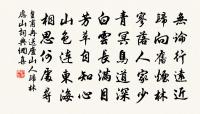 無論行遠近
歸向舊煙林
寥落人家少
青冥鳥道深
白雲長滿目
芳草自知心
山色連東海
相思何處尋
皇甫冉送盧山人歸林
慮山詞典網